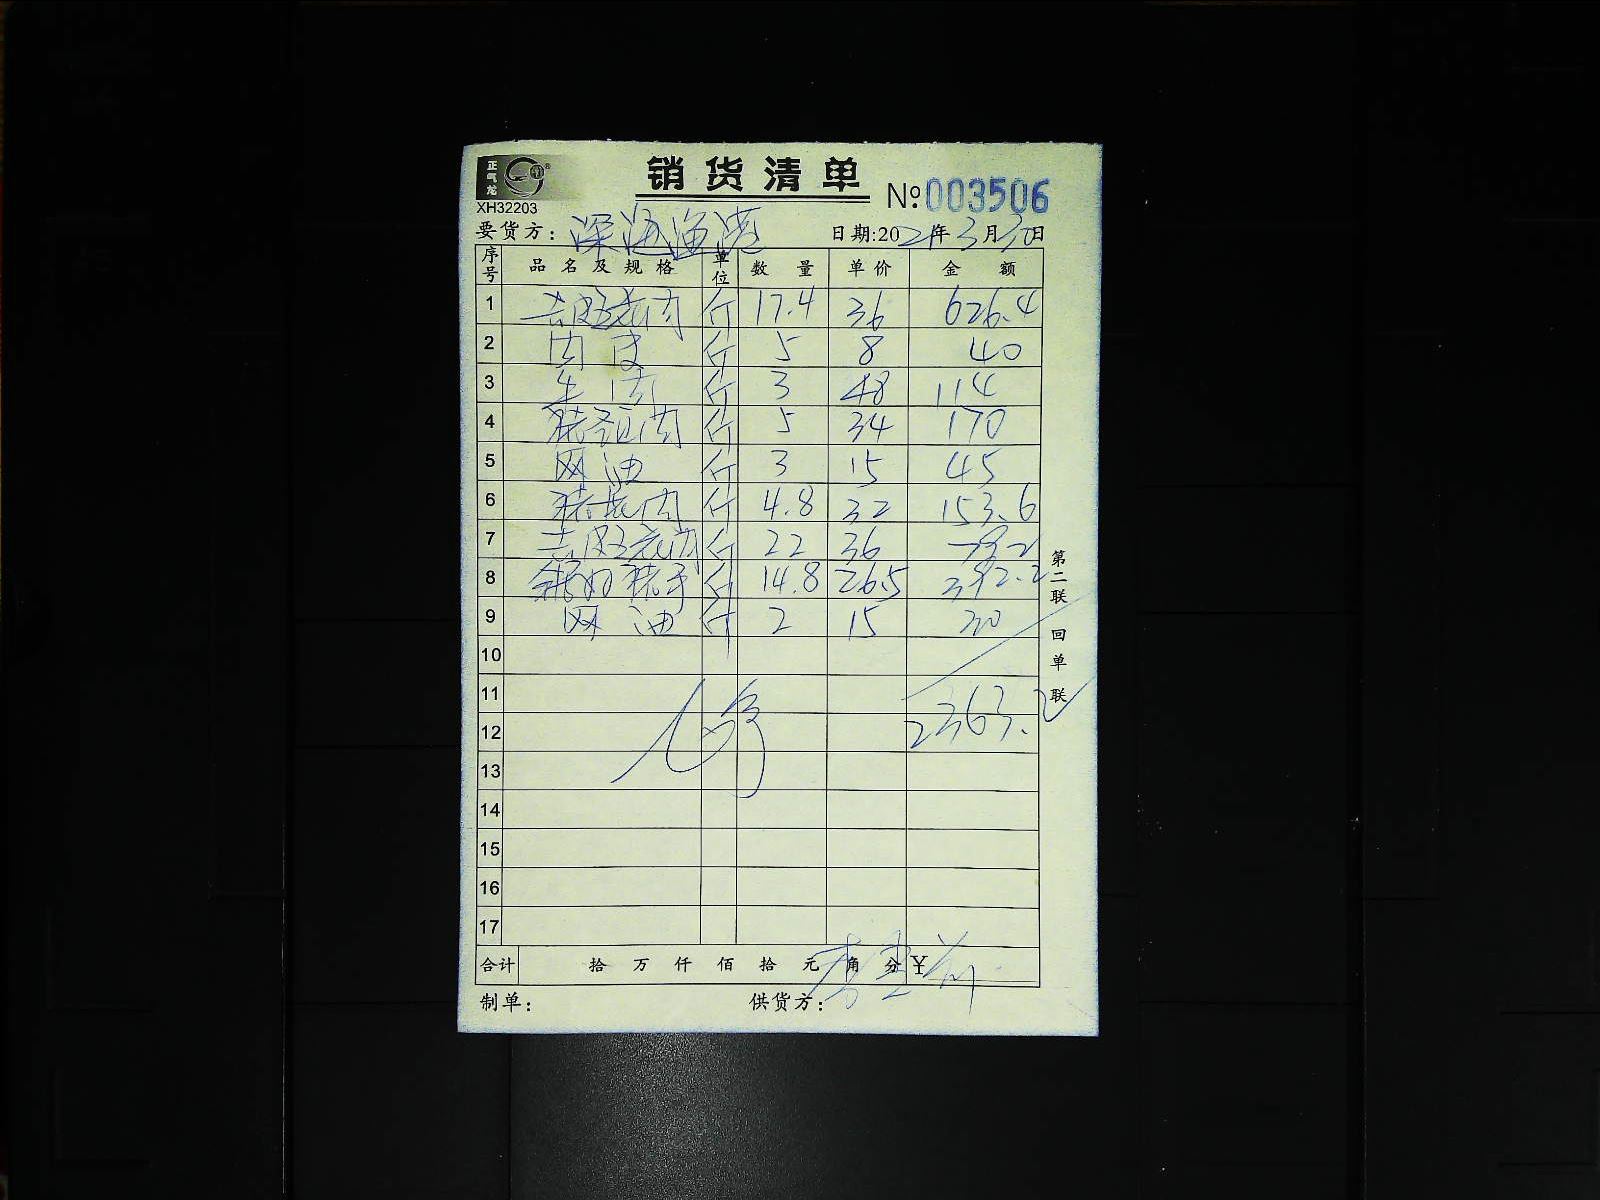 正气龙
XH32203
销货清单
№:003506
要货方: 深海渔港
日期:2021年3月30日
序号 品名及规格 单位 数量 单价 金额
1 去皮五花肉 斤 17.4 36 626.4
2 肉皮 斤 5 8 40
3 牛肉 斤 3 48 114
4 肉 斤 5 34 170
5 网油 斤 3 15 45
6 肉 斤 4.8 32 153.6
7 去皮五花肉 斤 22 36 792
8 斤 14.8 26.5 392.2
9 网油 斤 2 15 30
10
11
12 2363.2
13
14
15
16
17
合计 拾 万 仟 佰 拾 元 角 分 ¥
制单: 供货方: 李
第二联 回单联